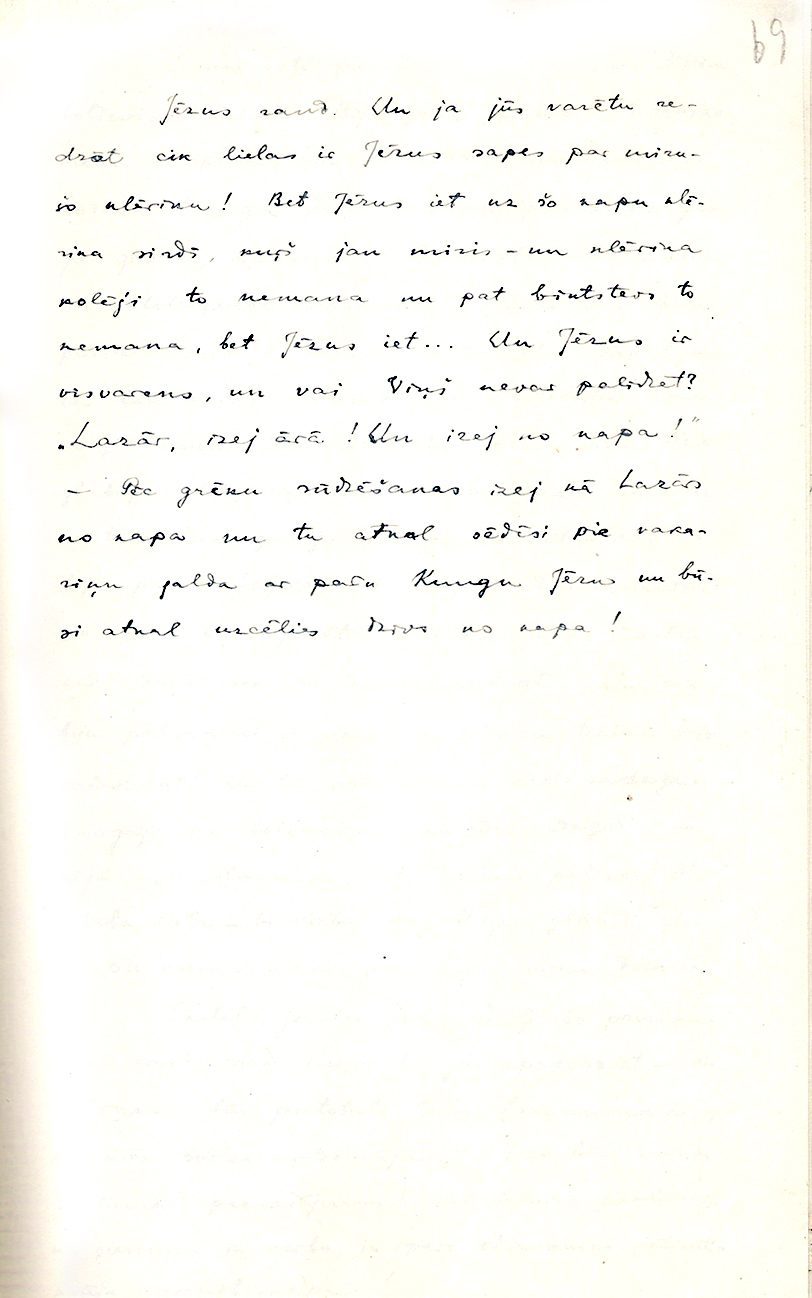 69
Jēzus raud. Un ja jūs varētu re-
dzēt cik lielas ir Jēzus sāpes par miru-
šo klēriku! Bet Jēzus iet uz šo kapu klē-
rika sirdī, kuŗš jau miris – un klērika
kolēģi to nemana un pat biktstēvs to
nemana, bet Jēzus iet... Un Jēzus ir
visvarens, un vai Viņš nevar palīdzēt?
„Lazār, izej ārā! Un izej no kapa!"
– Pēc grēku sūdzēšanas izej kā Lazārs
no kapa un tu atkal sēdēsi pie vaka-
riņu galda ar pašu Kungu Jēzu un bū-
si atkal uzcēlies dzīvs no kapa!